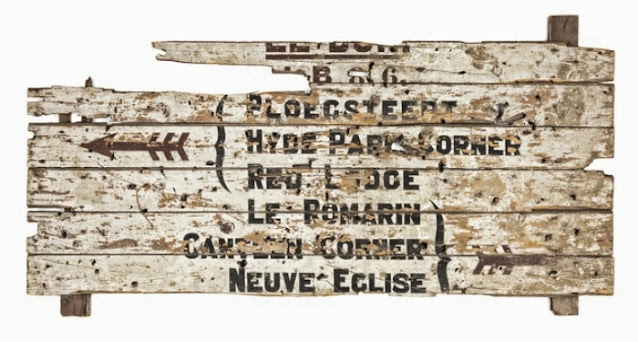 PLOEGSTEERT
HYDE PARK CORNER
RED LODGE
LE ROMARIN
CANTEEN CORNER
NEUVE EGLISE